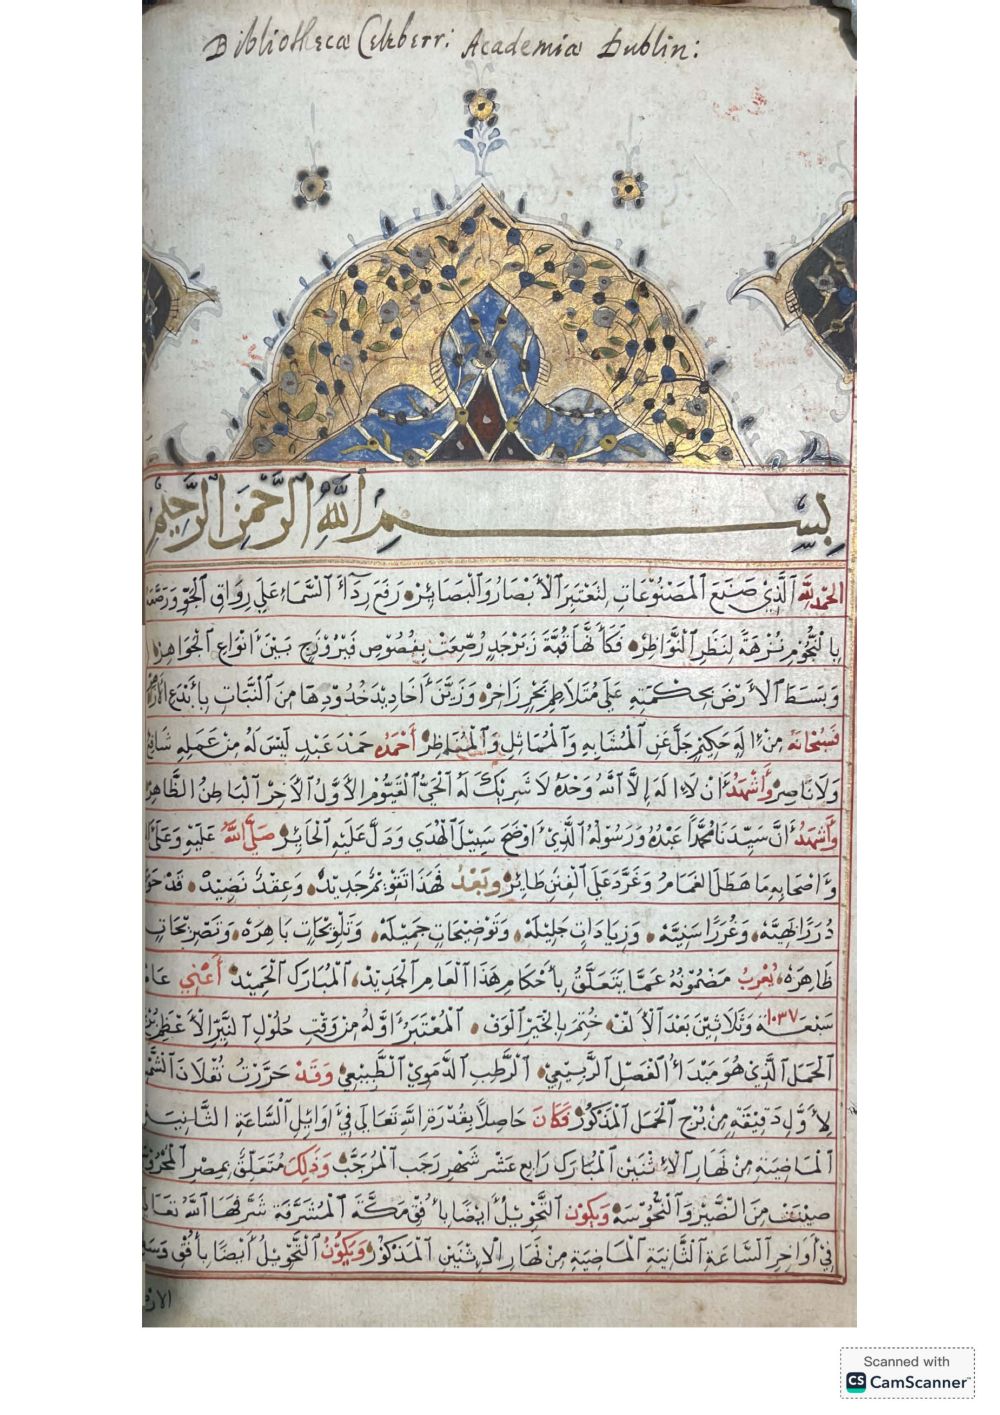 Bibliothecæ Celeberr: Academiæ Dublin:
بِسْمِ اللَّهِ الرَّحْمَنِ الرَّحِيمِ
الحمد لله الَّذِي صَنَعَ الْمَصْنُوعَاتِ لِتَعْتَبِرَ الْأَبْصَارُ وَالْبَصَائِرُ وَرَفَعَ رِدَاءَ السَّمَاءِ عَلَى رِوَاقِ الْجَوِّ وَرَصَّعَهَا
بِالنُّجُومِ نُزْهَةً لِنَظَرِ النَّوَاظِرْ فَكَأَنَّهَا قُبَّةُ زَبَرْجَدٍ رُصِّعَتْ بِفُصُوصِ فَيْرُوزَجٍ بَيْنَ أَنْوَاعِ الْجَوَاهِرْ
وَبَسَطَ الْأَرْضَ بِحِكْمَتِهِ عَلَى مُتَلَاطِمِ بَحْرٍ زَاخِرْ وَزَيَّنَ أَخَادِيدَ خُدُودِهَا مِنَ النَّبَاتِ بِأَبْدَعِ
فَسُبْحَانَهُ مِنْ إِلَهٍ حَكِيمٍ جَلَّ عَنِ الْمُشَابِهِ وَالْمُمَاثِلِ وَالْمُنَاظِرْ أَحْمَدُهُ حَمْدَ عَبْدٍ لَيْسَ لَهُ مِنْ عَمَلِهِ شَافِعٌ
وَلَا نَاصِرْ وَأَشْهَدُ أَنْ لَا إِلَهَ إِلَّا اللَّهُ وَحْدَهُ لَا شَرِيكَ لَهُ الْحَيُّ الْقَيُّومُ الْأَوَّلُ الْآخِرُ الْبَاطِنُ الظَّاهِرْ
وَأَشْهَدُ أَنَّ سَيِّدَنَا مُحَمَّدًا عَبْدُهُ وَرَسُولُهُ الَّذِي أَوْضَحَ سَبِيلَ الْهُدَى وَدَلَّ عَلَيْهِ الْحَائِرْ صَلَّى اللَّهُ عَلَيْهِ وَعَلَى
وَأَصْحَابِهِ مَا هَطَلَ الْغَمَامُ وَغَرَّدَ عَلَى الْفَنَنِ طَائِرْ وَبَعْدُ فَهَذَا تَقْوِيمٌ جَدِيدْ وَعِقْدٌ نَضِيدْ قَدْ حَوَى
دُرَرًا بَهِيَّهْ وَغُرَرًا سَنِيَّهْ وَزِيَادَاتٍ جَلِيلَهْ وَتَوْضِيحَاتٍ جَمِيلَهْ وَتَلْوِيحَاتٍ بَاهِرَهْ وَتَصْرِيحَاتٍ
ظَاهِرَهْ يُعْرِبُ مَضْمُونُهُ عَمَّا يَتَعَلَّقُ بِأَحْكَامِ هَذَا الْعَامِ الْجَدِيدْ الْمُبَارَكِ الْحَمِيدْ أَعْنِي عَامَ
سَبْعَةٍ ١٠٣٧ وَثَلَاثِينَ بَعْدَ الْأَلْفْ خُتِمَ بِالْخَيْرِ الْوَفْ الْمُعْتَبَرِ أَوَّلُهُ مِنْ وَقْتِ حُلُولِ النَّيِّرِ الْأَعْظَمِ
الْحَمَلِ الَّذِي هُوَ مَبْدَأُ الْفَصْلِ الرَّبِيعِي الرَّطْبِ الدَّمَوِيِّ الطَّبِيعِي وَقَدْ حَرَّرْتُ نُقْلَانَ الشَّمْسِ
لِأَوَّلِ دَقِيقَةٍ مِنْ بُرْجِ الْحَمَلِ الْمَذْكُورْ فَكَانَ حَاصِلًا بِقُدْرَةِ اللَّهِ تَعَالَى فِي أَوَائِلِ السَّاعَةِ الثَّانِيَةِ
الْمَاضِيَةِ مِنْ نَهَارِ الْاثْنَيْنِ الْمُبَارَكِ رَابِعَ عَشَرَ شَهْرِ رَجَبِ الْمُرَجَّبْ وَذَلِكَ مُتَعَلِّقٌ بِمِصْرَ الْمَحْرُوسَةِ
صِينَتْ مِنَ الضَّيْرِ وَالنُّحُوسَهْ وَيَكُونُ التَّحْوِيلُ أَيْضًا بِأُفُقِ مَكَّةَ الْمُشَرَّفَةِ شَرَّفَهَا اللَّهُ تَعَالَى
فِي أَوَاخِرِ السَّاعَةِ الثَّانِيَةِ الْمَاضِيَةِ مِنْ نَهَارِ الْاثْنَيْنِ الْمَذْكُورْ وَيَكُونُ التَّحْوِيلُ أَيْضًا بِأُفُقِ
Scanned with
CS CamScanner